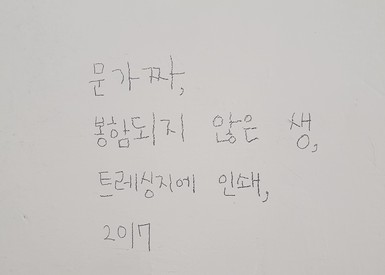 문가짜,
봉함되지 않은 생,
트레싱지에 인쇄,
2017